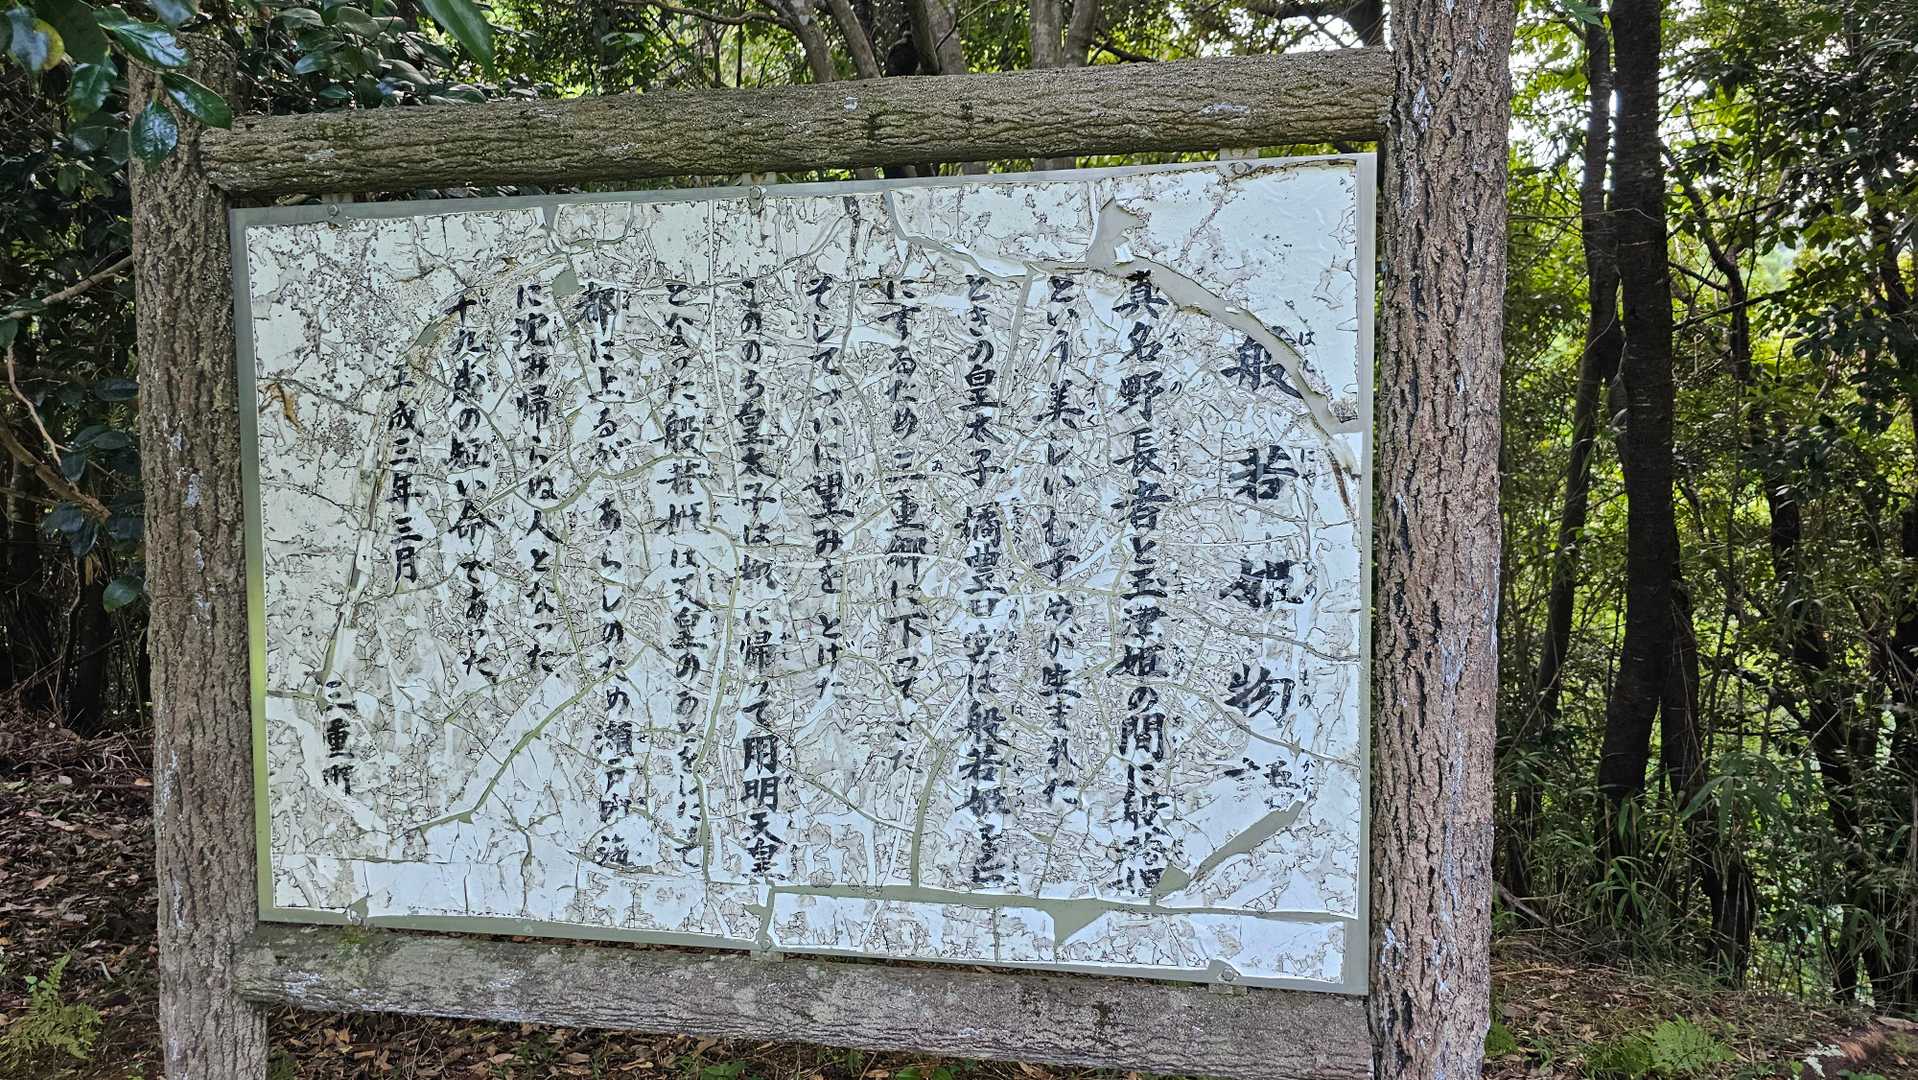 般若姫物語
真名野長者と玉津姫の間に般若姫
という美しいむすめが生まれた
ときの皇太子橘豊日皇子は般若姫を后
にするため三重郷に下ってこた
そしてついに望みをとげた
こののち皇太子は都に帰って用明天皇
となった般若姫は天皇のあとをしたって
都に上るが あらしのため瀬戸内海
に沈み帰らぬ人となった
十九才の短い命であった
平成三年三月
三重町